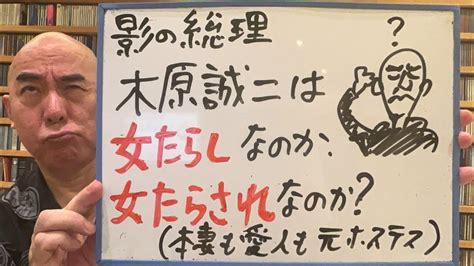 影の総理
?
木原誠二は
女たらしなのか、
女たらされなのか?
(本妻も愛人も元ホステス)